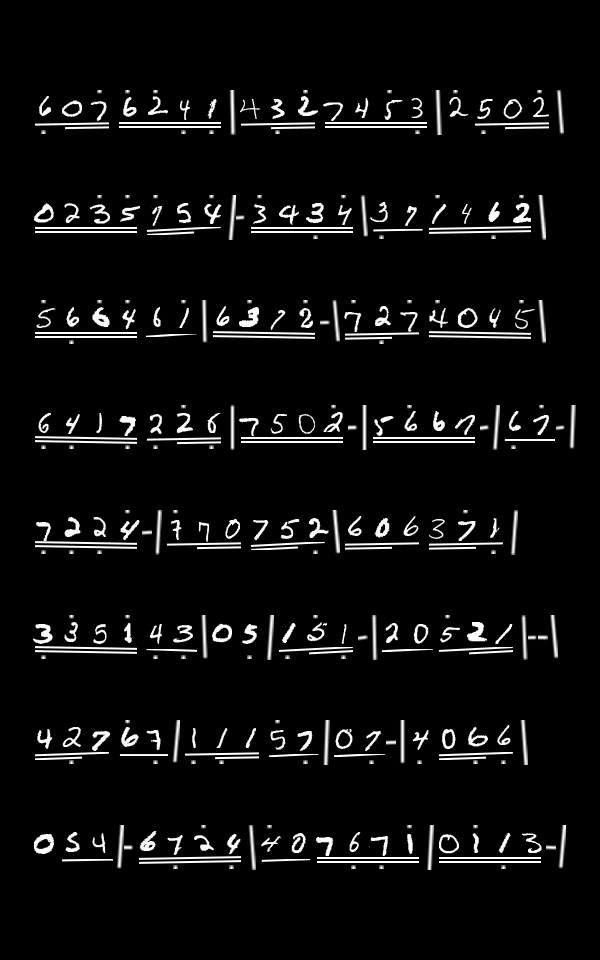 607 6241|432 7453|2502
0235 754-|3434|371462
566461|6372-|7274045
6417226|7502-|5667-|67-|
7224-|770 752|606371|
335143|05|151-|20521|--|
42767|111 57|07-|4066|
054|-6724|407671|0113-|